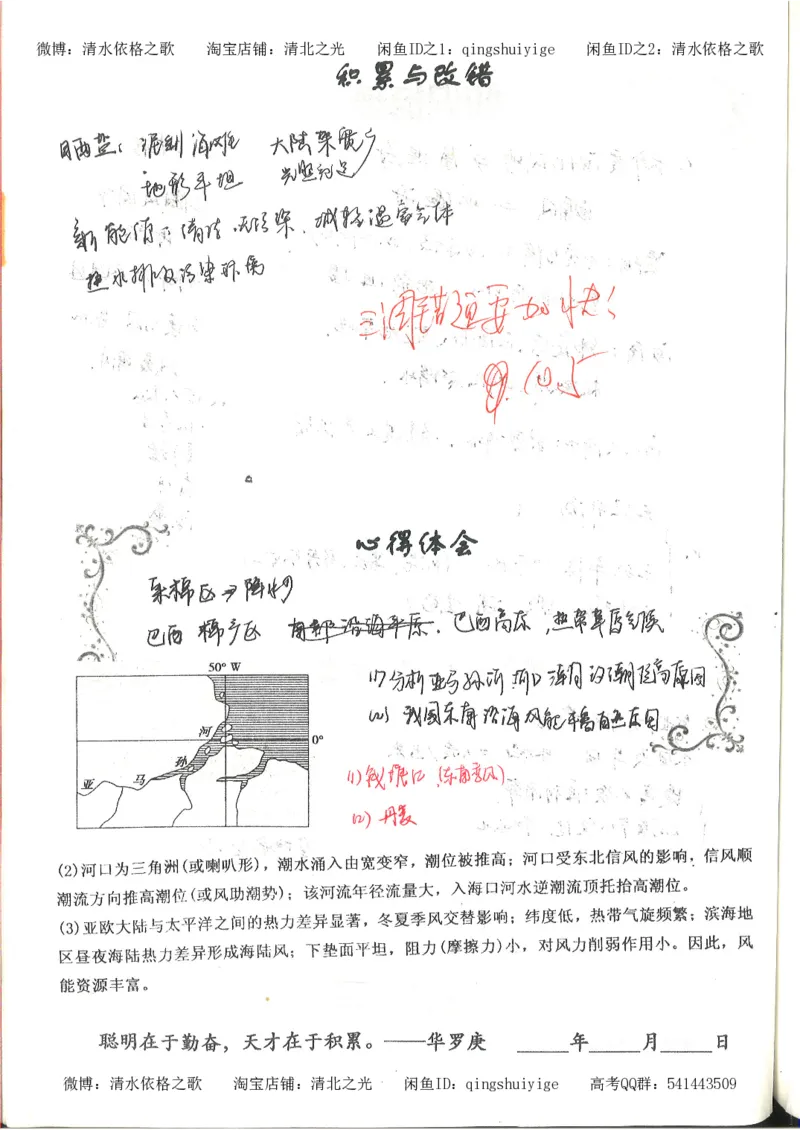 微博：清水依格之歌 淘宝店铺：清北之光 闲鱼ID之1：qingshuiyige 闲鱼ID之2：清水依格之歌
积累与改错
晒盐：泥制海滩 大陆架宽广
地形平坦 光照充足
新能源：清洁、无污染、减轻温室气体
热水排放污染环境
订错题要加快！
10.5
心得体会
采棉区→降水少
巴西 棉产区 南部沿海平原. 巴西高原,热带草原气候
50° W
(1)分析亚马孙河河口涌潮汐潮位高原因
(2) 我国东南沿海风能丰富自然原因
河
0°
孙
亚 马
(1)钱塘口(东南季风)
(2)
(2)河口为三角洲(或喇叭形)，潮水涌入由宽变窄，潮位被推高；河口受东北信风的影响，信风顺
潮流方向推高潮位(或风助潮势)；该河流年径流量大，入海口河水逆潮流顶托抬高潮位。
(3)亚欧大陆与太平洋之间的热力差异显著，冬夏季风交替影响；纬度低，热带气旋频繁；滨海地
区昼夜海陆热力差异形成海陆风；下垫面平坦，阻力(摩擦力)小，对风力削弱作用小。因此，风
能资源丰富。
聪明在于勤奋，天才在于积累。——华罗庚 _____年_____月_____日
微博：清水依格之歌 淘宝店铺：清北之光 闲鱼ID：qingshuiyige 高考QQ群：541443509